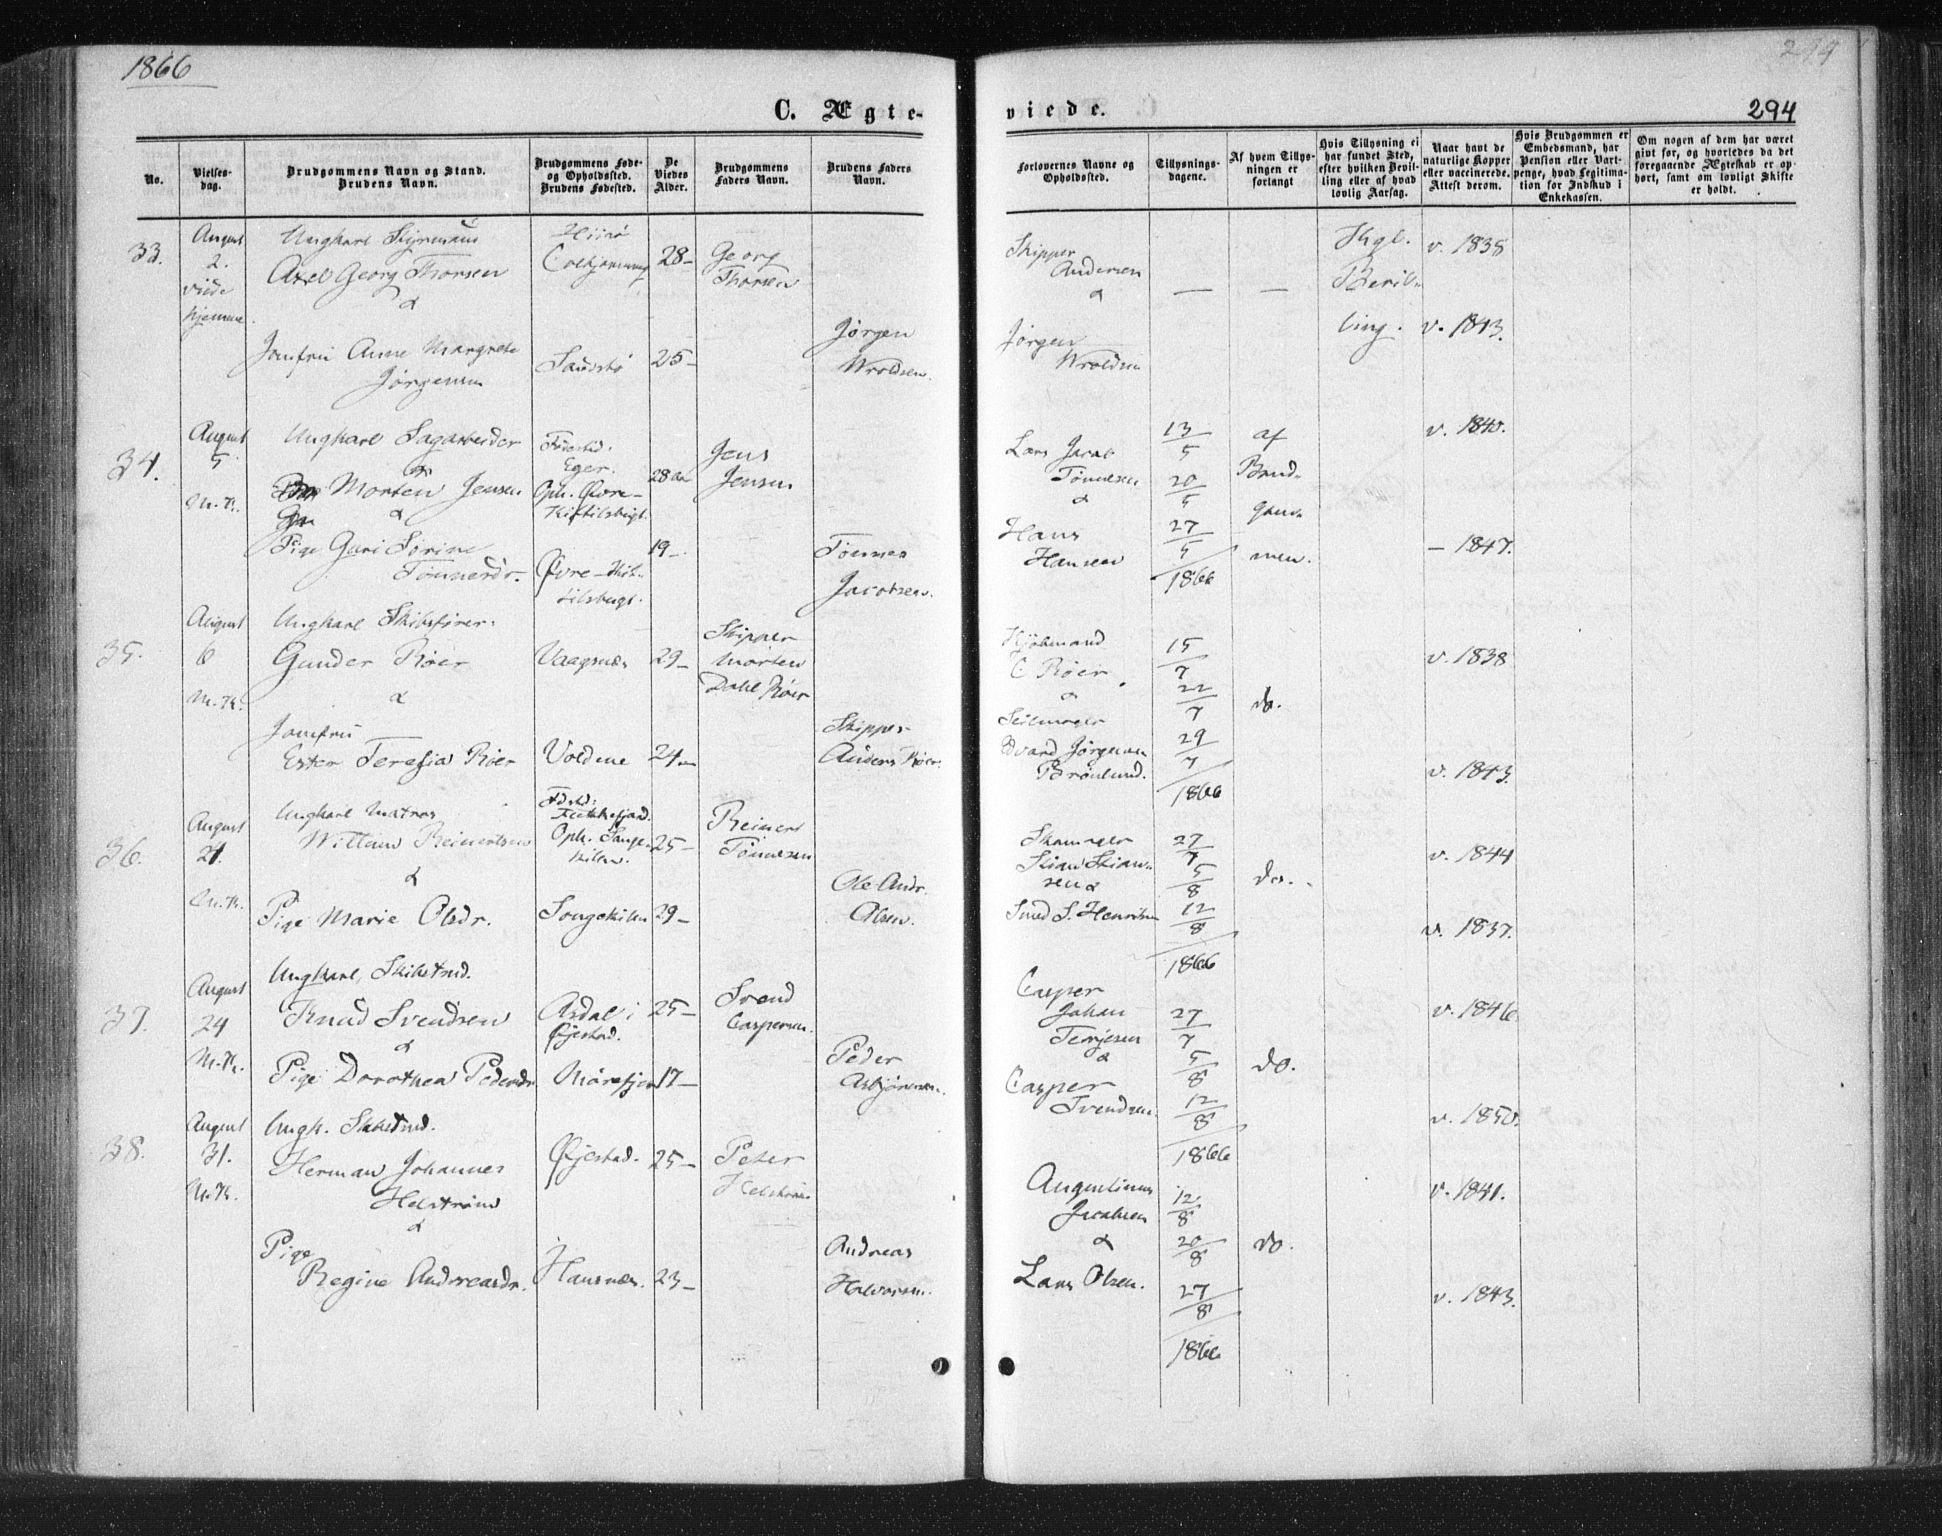 1866
294
C. Ægte-
viede.
294
No.
Vielses-
dag.
Brudgommens Navn og Stand.
Brudens Navn.
Brudgommens Føde-
og Opholdssted.
Brudens Fødested.
De
Viedes
Alder.
Brudgommens
Faders Navn.
Brudens Faders
Navn.
Forlovernes Navne og
Opholdssted.
Tillysnings-
dagene.
Af hvem Tillys-
ningen er
forlangt
Hvis Tillysning ei
har fundet Sted,
efter hvilken Bevil-
ling eller af hvad
lovlig Aarsag.
Naar havt de
naturlige Kopper
eller vaccinerede.
Attest derom.
Hvis Brudgommen er
Embedsmand, har
Pension eller Vart-
penge, hvad Legitima-
tion for Indskud i
Enkekassen.
Om nogen af dem har været
givt før, og hvorledes da det
foregaaende Ægteskab er op-
hørt, samt om lovligt Skifte
er holdt.
33.
August
2.
viede
hjemme.
Ungkarl Styrmand
Axel Georg Thorsen
&
Jomfru Anne Margrete
Jørgensen
Hisø
28-
25-
Georg
Thorsen
Jørgen
Wroldsen.
Skipper
Andersen
&
Jørgen
Wroldsen
—
—
Kgl.
Bevil-
ling.
v. 1838
v. 1843.
34.
August
5
M. K.
Ungkarl Sagarbeider
Morten Jensen
&
Pige Guri Sørine
Tønnesdr.
Fødested:
Eger.
Oph. Øvre-
Øvre-
28 Aar
19-
Jens
Jensen
Tønnes
Jacobsen.
Lars Jacob
Tønnesen
&
Hans
Hansen
13/5
20/5
27/5
1866
af
Brud-
gom-
men.
v. 1840.
- 1847.
35.
August
6
M. K.
Ungkarl Skibsfører.
Gunder Røer
&
Jomfru
Ester Teresia Røer
Vaagsnæs
Voldene
29-
24-
Skipper
Morten
Dahl Røer
Skipper
Anders Røer.
Kjøbmand
C Røer
&
Seilmager
Edvard Jørgensen
Brönlund.
15/7
22/7
29/7
1866
do.
v. 1838
v. 1843.
36.
August
21.
M. K.
Ungkarl Matros
William Reinertsen
&
Pige Marie Olsdr.
Fdstd:
Flekkefjord.
Oph. Songe-
kilen.
Songekilen
25-
29-
Reinert
Tönnesen
Ole Andr.
Olsen.
Skomager
Stian Stian-
sen &
Smed S. Henriksen
27/7
5/8
12/8
1866
do.
v. 1844
v. 1837.
37.
August
24
M. K.
Ungkarl, Skibstmd.
Knud Svendsen
&
Pige Dorothea Pedersdr
Asdal i
Øjestad.
Mørefjer
25-
17-
Svend
Caspersen.
Peder
Asbjørnsen.
Casper
Johan
Terjesen
&
Casper
Svendsen.
27/7
5/8
12/8
1866
do.
v. 1846
v. 1850.
38.
August
31.
M. K.
Ungk. Skibstmd.
Herman Johannes
Helström
&
Pige
Regine Andreasdr.
Øjestad.
Hansnæs.
25-
23-
Peter
Helström
Andreas
Halvorsen.
Augustinus
Jacobsen
&
Lars Olsen.
12/8
20/8
27/8
1866
do.
v. 1841.
v. 1843.